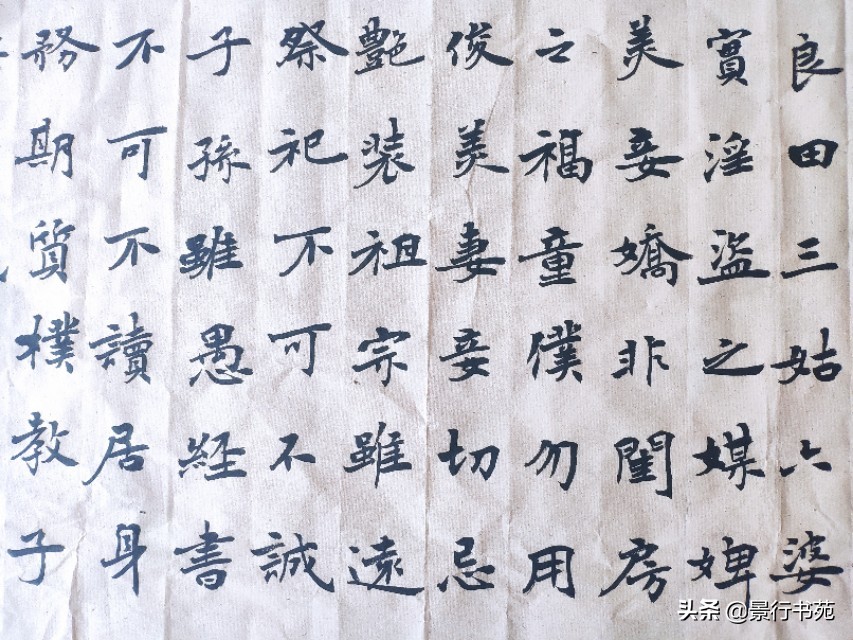 良田三姑六婆
實淫盜之媒婢
美妾嬌非閨房
之福童僕勿用
俊美妻妾切忌
艷裝祖宗雖遠
祭祀不可不誠
子孫雖愚經書
不可不讀居身
務期質樸教子
头条 @景行书苑